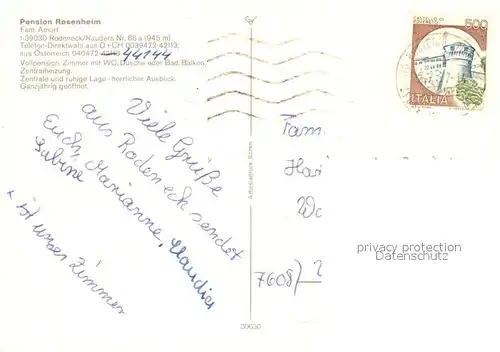 Pension Rosenheim
Fam. Amort
I-39030 Rodeneck/Nauders Nr. 68 a (945 m)
Telefon-Direktwahl aus D + CH 0039472-42113,
aus Österreich 040472-42113 44144
Vollpension, Zimmer mit WC, Dusche oder Bad, Balkon,
Zentralheizung.
Zentrale und ruhige Lage - herrlicher Ausblick.
Ganzjährig geöffnet.
Viele Grüße
aus Rodeneck sendet
Euch, Marianne, Claudia
Sabine
x ist unser Zimmer
500
ITALIA
Fam
Har
7608)
privacy protection
Datenschutz
00630